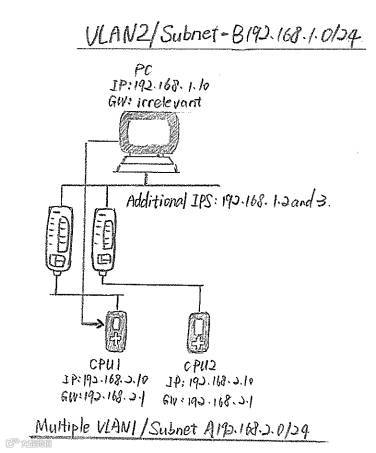 VLAN2/Subnet-B192.168.1.0/24
PC
IP:192.168.1.10
GW: irrelevant
Additional IPS: 192.168.1.2and3.
CPU1
IP:192.168.2.10
GW:192.168.2.1
CPU2
IP:192.168.2.10
GW:192.168.2.1
Multiple VLAN1/Subnet A192.168.2.0/24